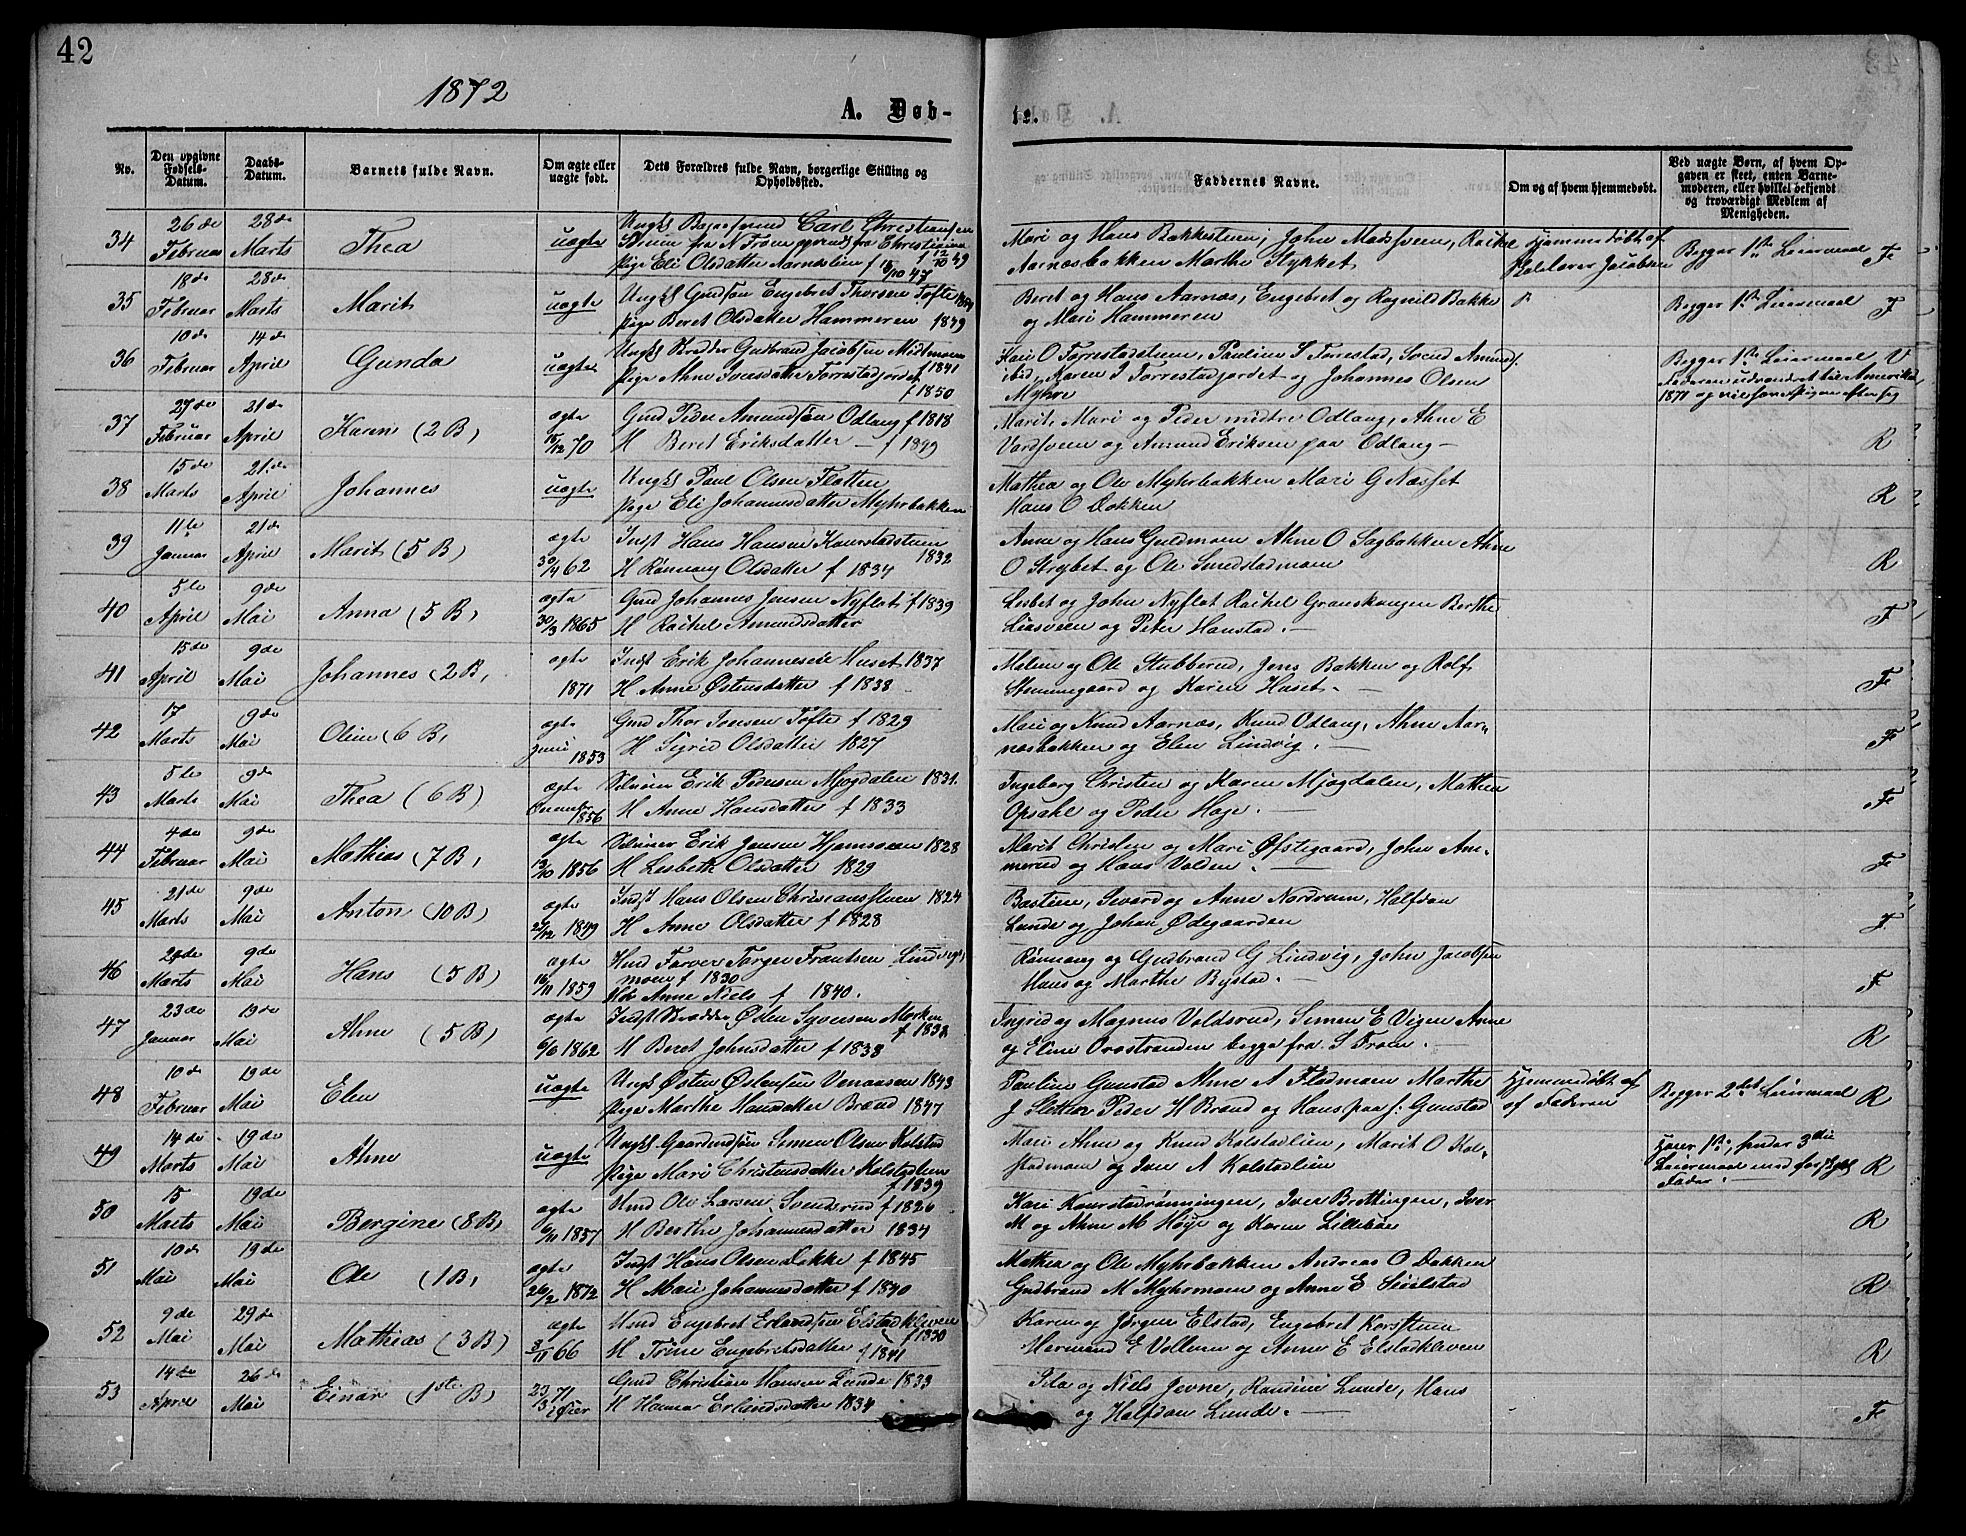 42
1872
A. Døb-
te.
No.
Den opgivne Fødsels-Datum.
Daabs-Datum.
Barnets fulde Navn.
Om ægte eller uægte født.
Dets Forældres fulde Navn, borgerlige Stilling og Opholdssted.
Faddernes Navne.
Om og af hvem hjemmedøbt.
Ved uægte Børn, af hvem Opgaven er skeet, enten Barnemoderen, eller hvilket bekjendt og troværdigt Medlem af Menigheden.
34 26de Februar 28de Marts Thea uægte
Carl Christiansen
fra N Fron fra Christiania
Pige Eli Olsdatter Aarneslien f 15/10 47
Mari og Hans Bakkesteen, John Madssveen,
Aarnesbakken Marthe Stykket
Hjemmedøbt af Jacobsen
Begges 1ste Leiermaal F
35 18de Februar 28de Marts Marit uægte
Ungk Gmdsøn Engebret Thorsen Tofte
Pige Beret Olsdatter Hammeren 1849
Beret og Hans Aarnæs, Engebret og Ragnild Bakke
og Mari Hammeren
Begges 1ste Leiermaal F
36 10de Februar 14de April Gunda uægte
Ungk Skredder Gudbrand Jacobsen Midtmoen f 1841
Pige Ahne Iversdatter Forrestadjordet f 1850
Kari O Forrestadsteen, Pauline S Forrestad, Svend Amund
ibid, Karen I Forrestadjordet og Johannes Olsen
Myhre
Begges 1ste Leiermaal V
Faderen udvandret til Amerika
1871 og vil have Pigen efter sig
37 27de Februar 21de April Karen (2 B) ægte 15/12 70
Gmd Peder Amundsøn Odlaug f 1818
H Beret Eriksdatter — f 1849
Marit, Mari og Peder midtre Odlaug, Ahne E
Vardsveen og Amund Eriksen paa Odlaug —
R
38 15de Marts 21de April Johannes uægte
Ungk Paul Olsen Flatten
Pige Eli Johannesdatter Myhrbakken
Mathea og Ole Myhrbakken Mari G Næsset
Hans O Dokken
R
39 11te Januar 21de April Marit (5 B) ægte 30/4 62
Indst Hans Hansen Kaurstadsteen 1832
H Rønnaug Olsdatter f 1834
Anne og Hans Guldmoen Ahne O Sagbakken Ahne
O Strybet og Ole Smedstadmoen
R
40 5te April 9de Mai Anna (5 B) ægte 30/3 1865
Gmd Johannes Jensen Nyflot f 1839
H Rachel Amundsdatter
Lisbet og John Nyflot Rachel Granskaugen Berthe
Liasveen og Peter Hanstad. —
F
41 15de April 9de Mai Johannes (2 B) ægte 1871
Indst Erik Johannesen Huset 1837
H Anne Østensdatter f 1838
Malene og Ole Stubberud, Jens Bakken og Rolf
Stemmegaard og Karen Huset. —
F
42 17 Marts 9de Mai Oline (6 B) ægte Juni 1853
Gmd Thor Jensen Tofte f 1829
H Sigrid Olsdatter 1827
Mari og Knud Aarnæs, Knud Odlaug, Ahne Aar-
næsbakken og Elen Lindvig. —
F
43 5te Marts 9de Mai Thea (6 B) ægte 1856
Selveier Erik Pedersen Mjøgdalen 1831
H Anne Hansdatter f 1833
Ingeborg Christen og Karen Mjøgdalen, Mathea
Opsahl og Peder Hage. —
F
44 4de Februar 9de Mai Mathias (7 B) ægte 13/10 1856
Selveier Erik Jensen 1828
H Lisbeth Olsdatter 1829
Marit Christen og Mari Øfstegaard, John Am-
merud og Hans Volden. —
F
45 21de Marts 9de Mai Anton (10 B) ægte 27/12 1849
Indst Hans Olsen Christianssteen 1824
H Anne Olsdatter f 1828
Bastine, Sivard og Anne Nordrum, Halfdan
Lunde og Johan Ødegaarden
F
46 Marts 9de Mai Hans (5 B) ægte 16/11 1859
Hmd Farver Torger Frantsen Lindvigs
moen f 1830.
Anne Niels f 1840.
Rønnaug og Gudbrand G Lindvig, John Jacobsen
Hans og Marthe Bystad. —
F
47 23de Januar 19de Mai Ahne (5 B) ægte 6/6 1862
Indst Skredder Østen Syversen Morken f 1838
H Beret Johnsdatter f 1838
Ingrid og Magnus Voldsrud, Simen E Vigen Anne
og Eline Orostranden begge fra S Fron. —
R
48 10de Februar 19de Mai Elen uægte
Ungk Østen Østensen Venaasen 1843
Pige Marthe Hansdatter Brænd 1847
Pauline Gunstad Ahne A Flodmoen Marthe
J Sletten Peder H Brænd og Hans paa s: Gunstad
Hjemmedøbt af
af Faderen
Begges 2det Leiermaal R
49 14de Marts 19de Mai Ahne uægte
Ungk Gaardmdsøn Simen Olsen Kolstad
Pige Mari Christensdatter Kolstadlien f 1839
Mari Ahne og Knud Kolstadlien, Marit O Kol-
stadmoen og Iver A Kolstadlien
1ste, hendes 3die
Leiermaal med forskjel
Fader. — R
50 15 Marts 19de Mai Bergine (8 B) ægte 6/11 1857
Hmd Ole Larsen Svendsrud f 1826
H Berthe Johannesdatter 1834
Kari Kaurstadrønningen, Iver Brettingen, Iver
M og Ahne M Høye og Karen Lillebøe
R
51 10de Mai 19de Mai Ole (1 B) ægte 26/2 1872
Indst Hans Olsen Dokken f 1845
H Mari Johannesdatter f 1840
Mathea og Ole Myhrbakken Andreas O Dokken
Gudbrand M Myhrmoen og Anne E Sielstad
R
52 9de Mai 29de Mai Mathias (3 B) ægte 3/11 66
Hmd Engebret Erlandsen Elstadkleven f 1830
H Trine Engebretsdatter f 1841
Karen og Jørgen Elstad, Engebret Korssteen
Hermand E Vollum og Anne E Elstadkleven
R
53 14de April 26de Mai Einar (1ste B) 23/3 71 i Øier
Gmd Christian Hansen Lunde 1833
H Hanna Erlandsdatter 1834
Pila og Niels Jevne, Randine Lunde, Hans
og Halfdan Lunde. —
F